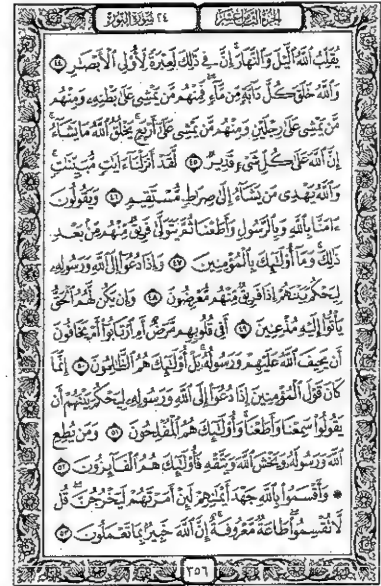 الجزء الثامن عشر ٢٤ سورة النور
يُقَلِّبُ ٱللَّهُ ٱلَّيۡلَ وَٱلنَّهَارَۚ إِنَّ فِي ذَٰلِكَ لَعِبۡرَةٗ لِّأُوْلِي ٱلۡأَبۡصَٰرِ ٤٤
وَٱللَّهُ خَلَقَ كُلَّ دَآبَّةٖ مِّن مَّآءٖۖ فَمِنۡهُم مَّن يَمۡشِي عَلَىٰ بَطۡنِهِۦ وَمِنۡهُم
مَّن يَمۡشِي عَلَىٰ رِجۡلَيۡنِ وَمِنۡهُم مَّن يَمۡشِي عَلَىٰٓ أَرۡبَعٖۚ يَخۡلُقُ ٱللَّهُ مَا يَشَآءُۚ
إِنَّ ٱللَّهَ عَلَىٰ كُلِّ شَيۡءٖ قَدِيرٞ ٤٥ لَّقَدۡ أَنزَلۡنَآ ءَايَٰتٖ مُّبَيِّنَٰتٖۚ
وَٱللَّهُ يَهۡدِي مَن يَشَآءُ إِلَىٰ صِرَٰطٖ مُّسۡتَقِيمٖ ٤٦ وَيَقُولُونَ
ءَامَنَّا بِٱللَّهِ وَبِٱلرَّسُولِ وَأَطَعۡنَا ثُمَّ يَتَوَلَّىٰ فَرِيقٞ مِّنۡهُم مِّنۢ بَعۡدِ
ذَٰلِكَۚ وَمَآ أُوْلَٰٓئِكَ بِٱلۡمُؤۡمِنِينَ ٤٧ وَإِذَا دُعُوٓاْ إِلَى ٱللَّهِ وَرَسُولِهِۦ
لِيَحۡكُمَ بَيۡنَهُمۡ إِذَا فَرِيقٞ مِّنۡهُم مُّعۡرِضُونَ ٤٨ وَإِن يَكُن لَّهُمُ ٱلۡحَقُّ
يَأۡتُوٓاْ إِلَيۡهِ مُذۡعِنِينَ ٤٩ أَفِي قُلُوبِهِم مَّرَضٌ أَمِ ٱرۡتَابُوٓاْ أَمۡ يَخَافُونَ
أَن يَحِيفَ ٱللَّهُ عَلَيۡهِمۡ وَرَسُولُهُۥۚ بَلۡ أُوْلَٰٓئِكَ هُمُ ٱلظَّٰلِمُونَ ٥٠ إِنَّمَا
كَانَ قَوۡلَ ٱلۡمُؤۡمِنِينَ إِذَا دُعُوٓاْ إِلَى ٱللَّهِ وَرَسُولِهِۦ لِيَحۡكُمَ بَيۡنَهُمۡ أَن
يَقُولُواْ سَمِعۡنَا وَأَطَعۡنَاۚ وَأُوْلَٰٓئِكَ هُمُ ٱلۡمُفۡلِحُونَ ٥١ وَمَن يُطِعِ
ٱللَّهَ وَرَسُولَهُۥ وَيَخۡشَ ٱللَّهَ وَيَتَّقۡهِ فَأُوْلَٰٓئِكَ هُمُ ٱلۡفَآئِزُونَ ٥٢
۞ وَأَقۡسَمُواْ بِٱللَّهِ جَهۡدَ أَيۡمَٰنِهِمۡ لَئِنۡ أَمَرۡتَهُمۡ لَيَخۡرُجُنَّۖ قُل
لَّا تُقۡسِمُواْۖ طَاعَةٞ مَّعۡرُوفَةٌۚ إِنَّ ٱللَّهَ خَبِيرُۢ بِمَا تَعۡمَلُونَ ٥٣
٣٥٦